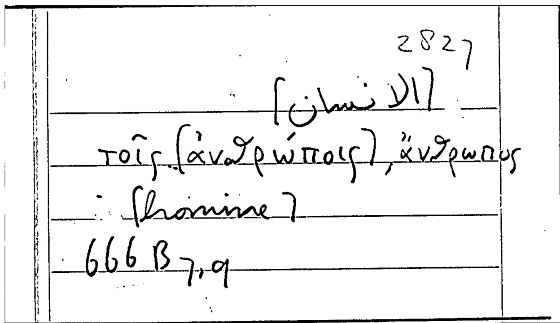 2827
[الانسان]
τοῖς [ἀνθρώποις], ἄνθρωπος
[homine]
666 B 7,9